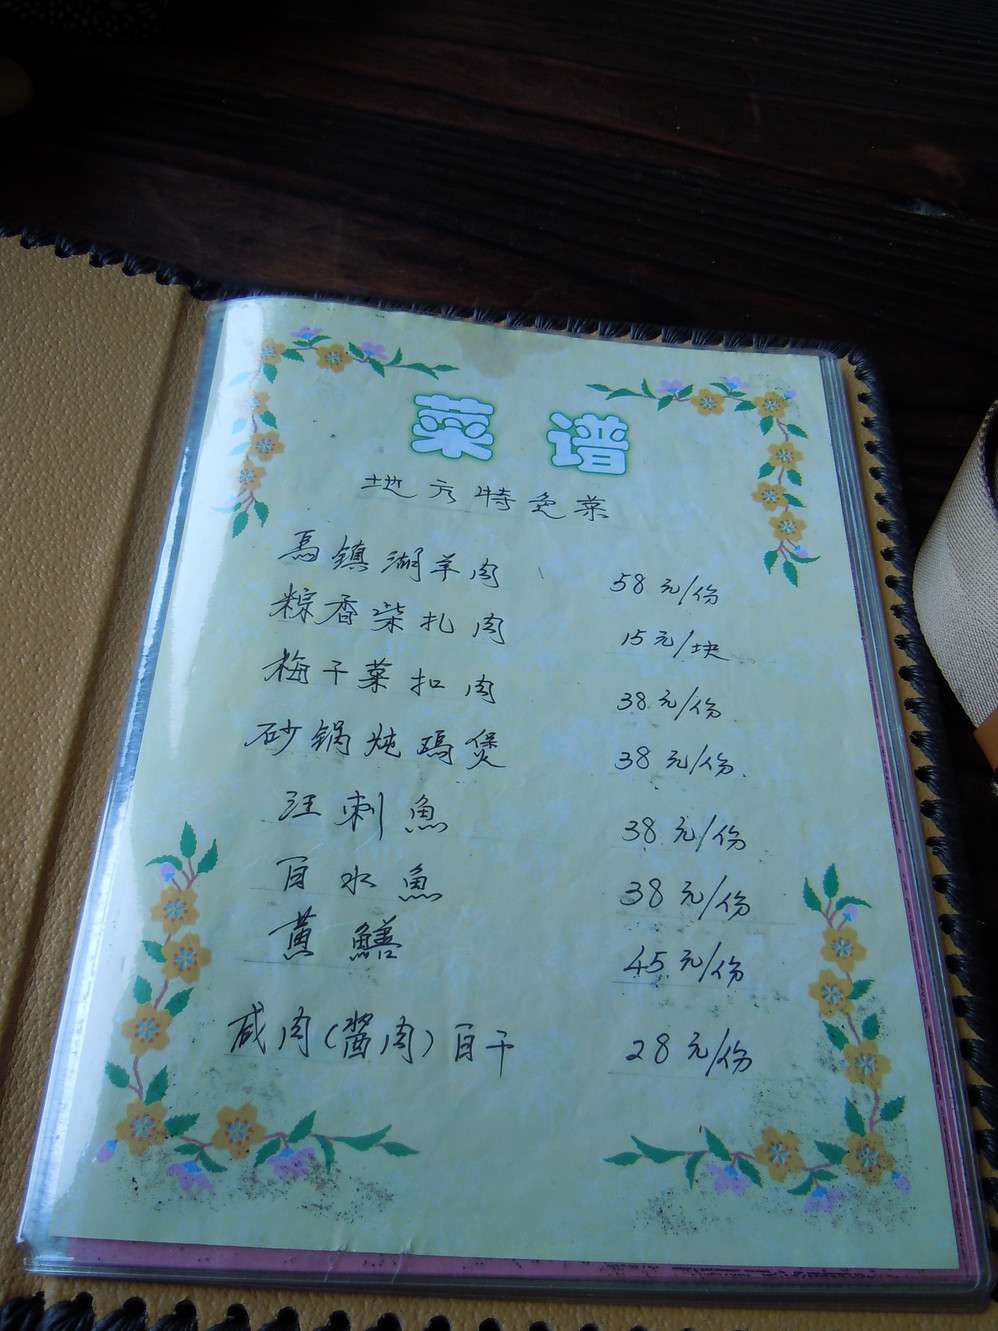 菜谱
地方特色菜
馬镇湖羊肉 58元/份
粽香柴扎肉 15元/块
梅干菜扣肉 38元/份
砂锅炖鸡煲 38元/份
汪刺魚 38元/份
白水魚 38元/份
黄鱔 45元/份
咸肉(醬肉)百干 28元/份